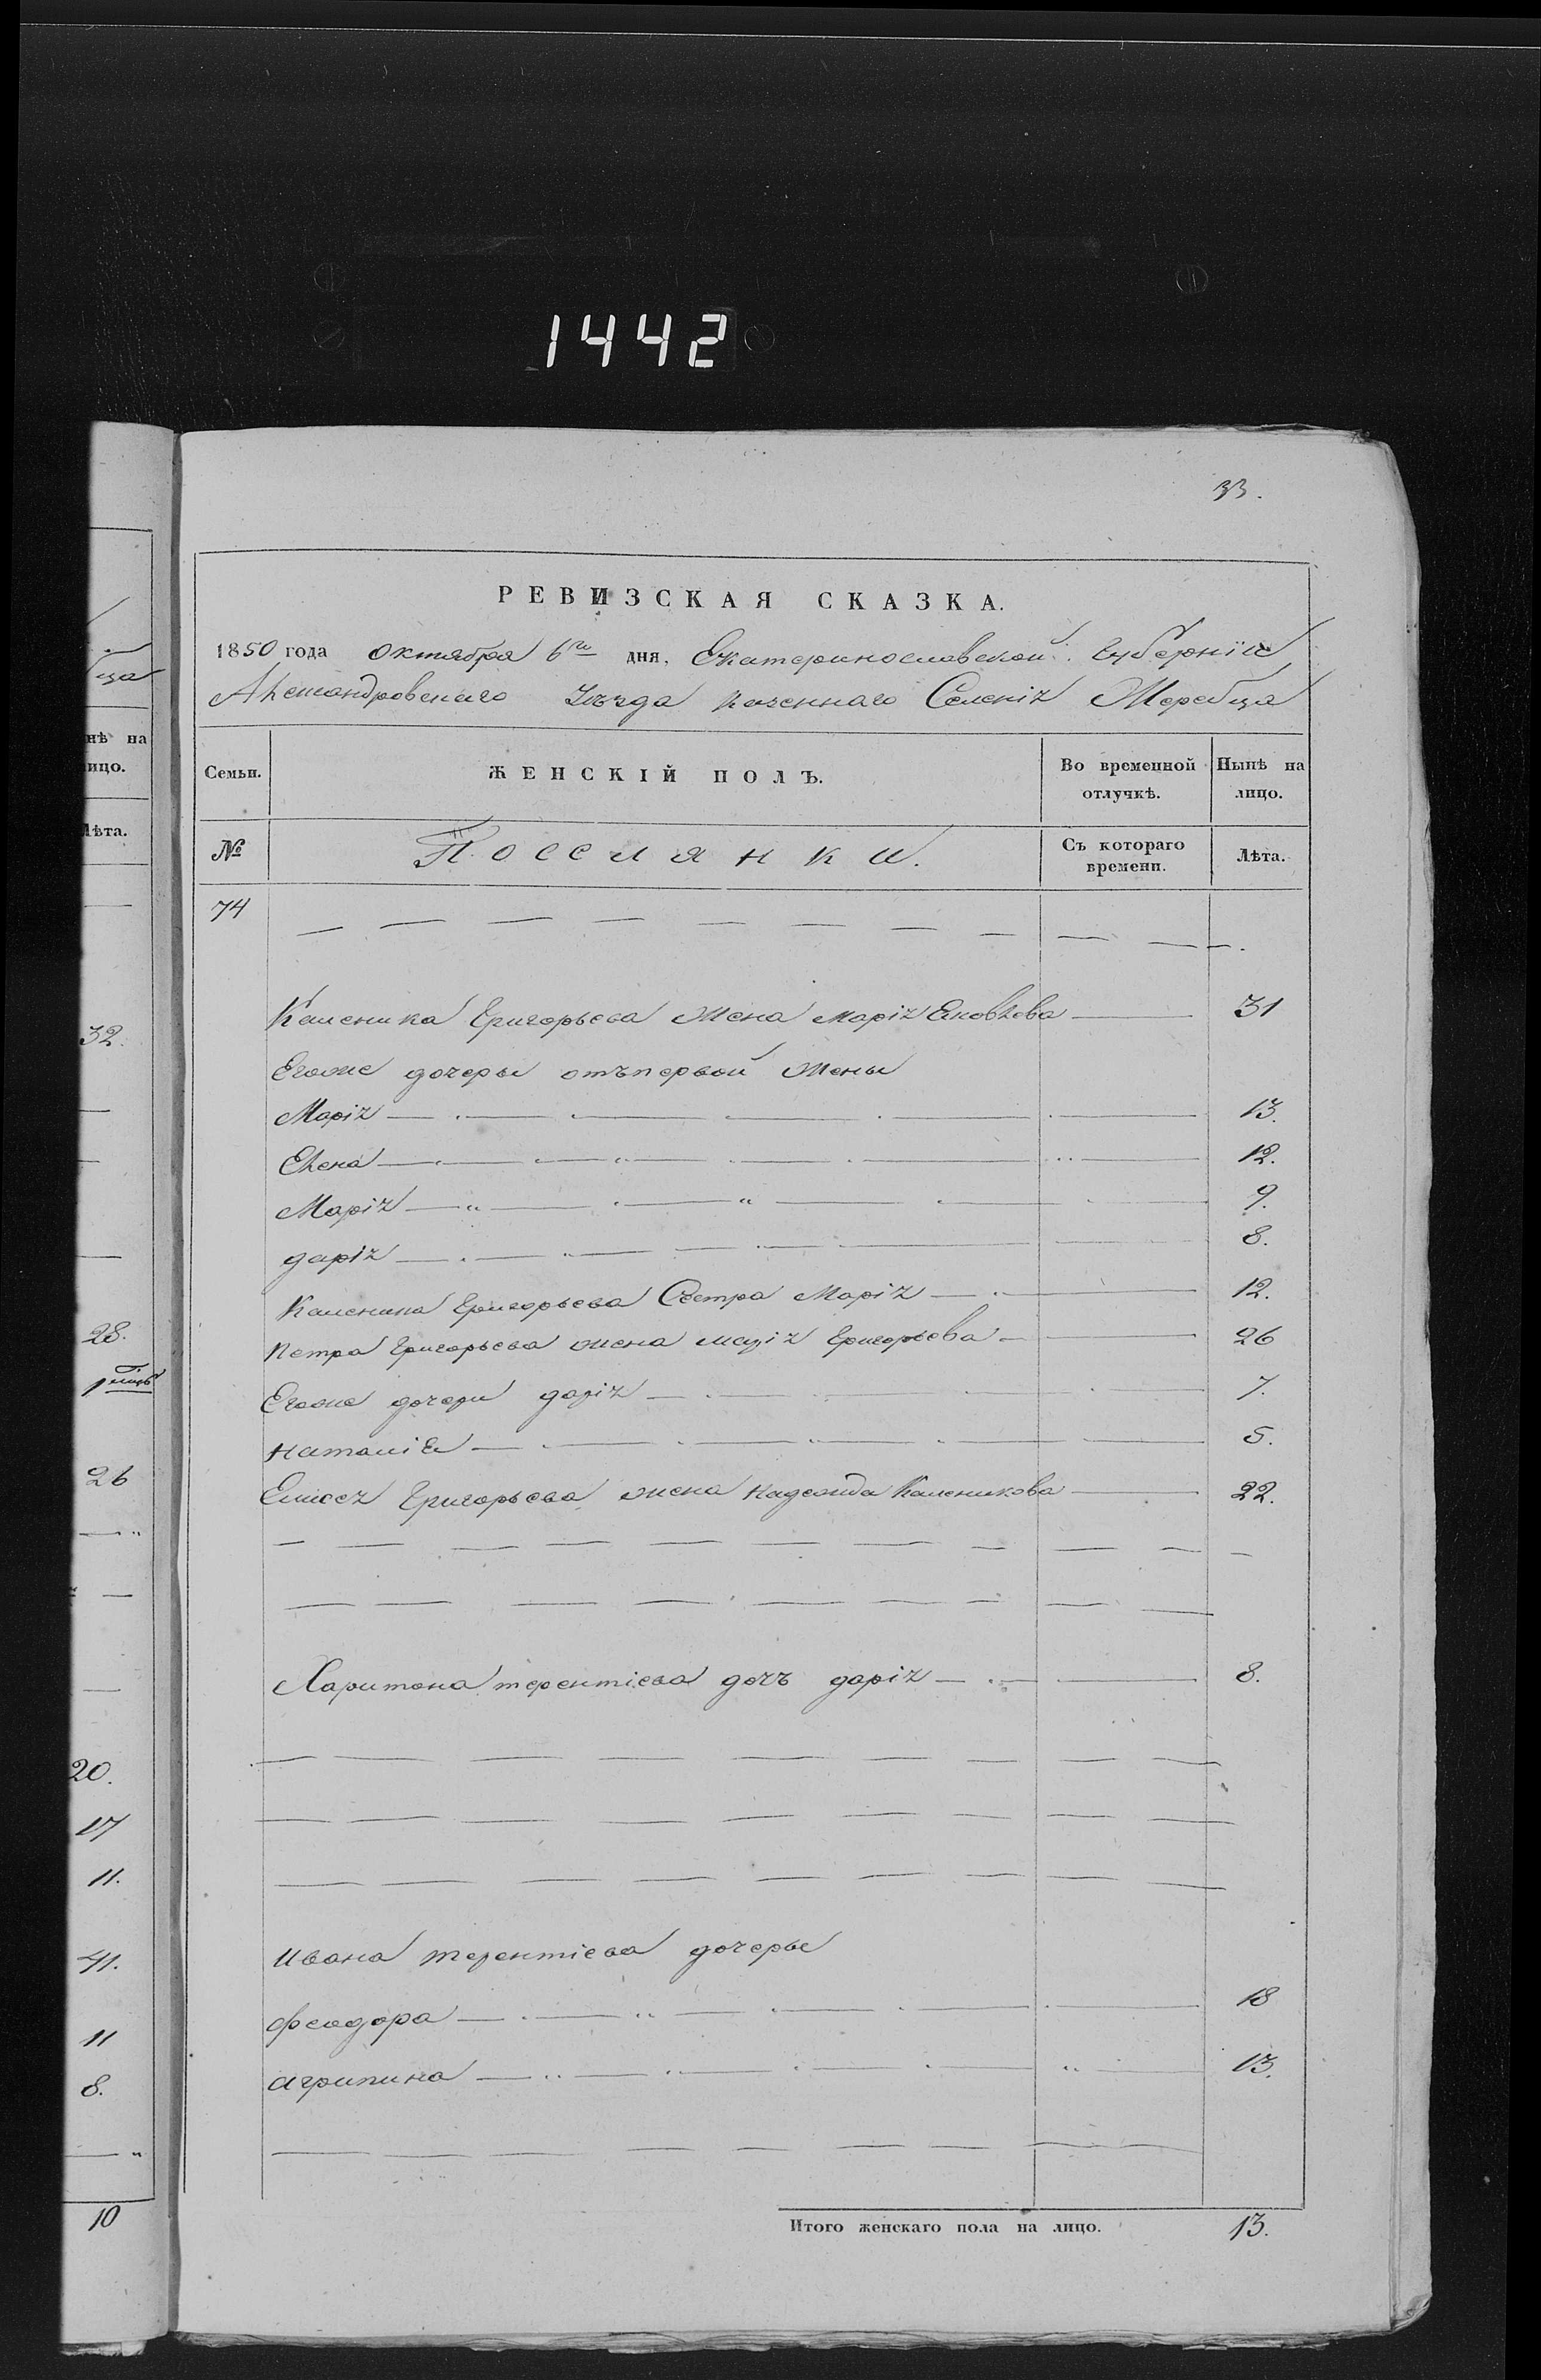 1442
33.
РЕВИЗСКАЯ СКАЗКА.
1850 года октября 6го дня, Екатеринославской Губерніи
Александровскаго Уѣзда казеннаго Селенія Жеребца
Семьи.
ЖЕНСКІЙ ПОЛЪ.
Во временной отлучкѣ.
Нынѣ на лицо.
№
Поселянки.
Съ котораго времени.
Лѣта.
74
Каленика Григорьева жена Марія Яковлева 31
Егоже дочеры отъ первой жены
Марія 13.
Елена 12.
Марія 9.
дарія 8.
Каленика Григорьева Сестра Марія 12.
Петра Григорьева жена марія Григорьева 26
Егоже дочери дарія 7.
Наталія 5.
Елисея Григорьева жена Надежда Каленикова 22.
Харитона терентіева дочь дарія 8.
Ивана терентіева дочеры
феодора 18
агрипина 13.
Итого женскаго пола на лицо. 13.
ца
нѣ на
ицо.
Лѣта.
32.
28.
26
20.
17
11.
41.
11
8.
10